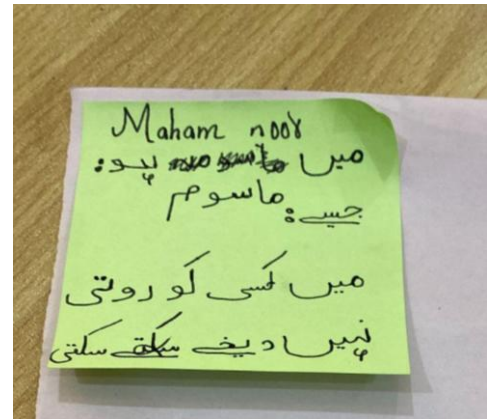 Maham noor
میں ہو:
جسے: ماسوم
میں کسی کو روتی
نہیں دیخے سکتی